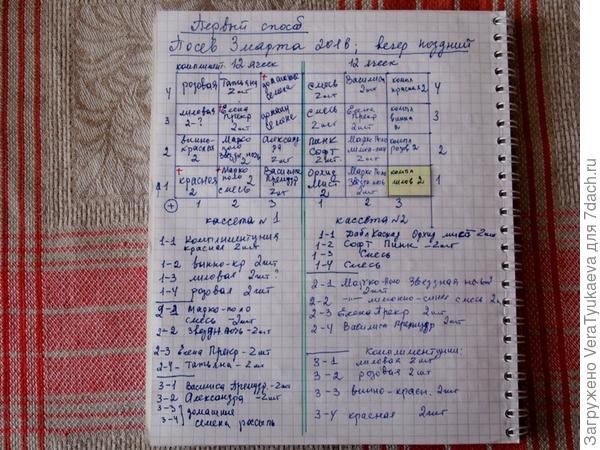 Первый способ
Посев 3 марта 2018, вечер поздний
комплимент. 12 ячеек
12 ячеек
4 розовая Татьяна 2шт домашние семена
3 лиловая 2-? Елена Прекр 2шт домашн семена
2 винно-красная 2 Марко поло звездн ночь 2 Александра 2шт
1 красная 2 Марко поло смесь 2 Василиса 2шт
1 2 3
смесь 2шт Василиса 2шт компл красная 2 4
смесь 2шт Елена Прекр 2шт компл винно 2 3
Пинк Софт 2шт Марко Поло компл розов 2 2
Орхид Мист 2 Марко Поло Звездн ночь компл лилов 2 1
1 2 3
кассета №1
1-1 Комплиментуния
красная 2шт
1-2 винно-кр 2шт
1-3 лиловая 2шт?
1-4 розовая 2шт
2-1 Марко-поло
смесь -2шт
2-2 Звездн ночь -2шт
2-3 Елена Прекр -2шт
2-4 Татьяна -2шт
3-1 василиса -2шт
3-2 Александра -2шт
3-3 домашние
3-4 семена
кассета №2
1-1 Дабл Каскад Орхид мист 2шт
1-2 Софт Пинк -2шт
1-3 Смесь
1-4 Смесь
2-1 Марко-поло Звездная ночь
2шт
2-2 -"- смесь 2
2-3 Елена Прекр 2шт
2-4 Василиса 2шт
Комплиментунии:
3-1 лиловая 2шт
3-2 розовая 2шт
3-3 винно-красн. 2шт
3-4 красная 2шт
Загружено VeraTyukaeva для 7dach.ru